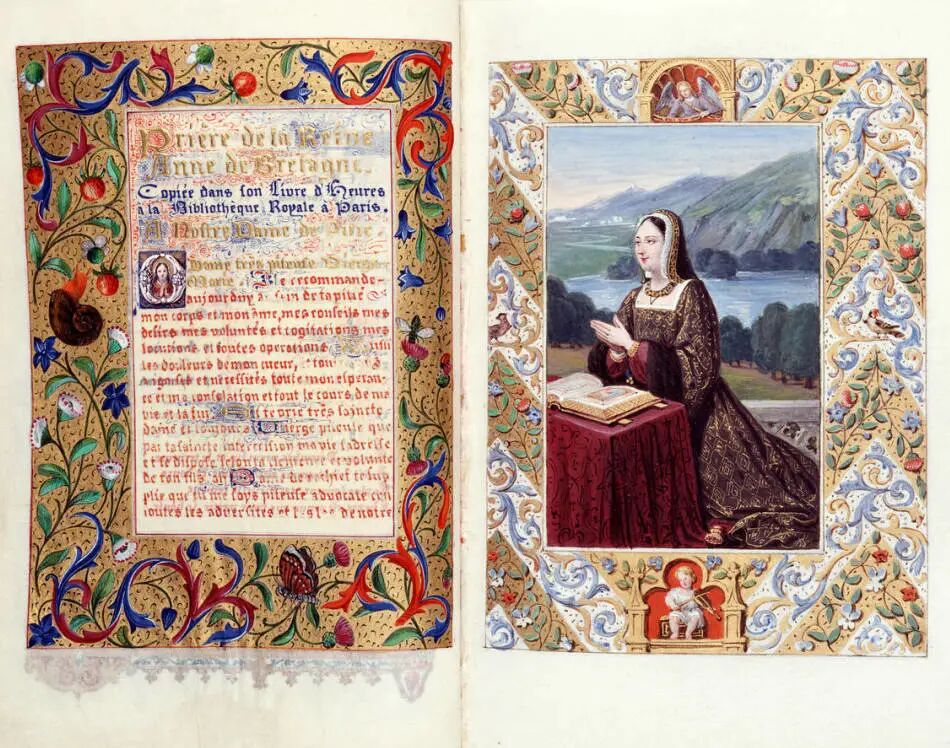 Prière de la Reine
Anne de Bretagne.
Copiée dans son Livre d'Heures
à la Bibliothèque Royale à Paris.
A Nostre Dame de
très piteuse Vierge
Marie. Je recommande
aujourduy
mon corps et mon ame, mes conseils mes
desirs mes voluntés et cogitations mes
locutions et toutes operations
les douleurs de mon cueur,
angoisses et necessités toute mon esperan
ce et ma consolation et tout le cours de ma
vie et la fin très saincte
dame et toujours Vierge piteuse que
par ta saincte intercession ma vie s'adresse
et se dispose selon la clemence et volunte
de ton fils Dame de rechief te sup
plie que tu me soys piteuse advocate con
toutes les adversités et de nostre